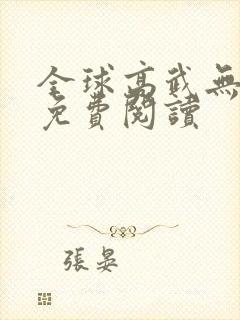 全球高武無
免費閱讀
張晏